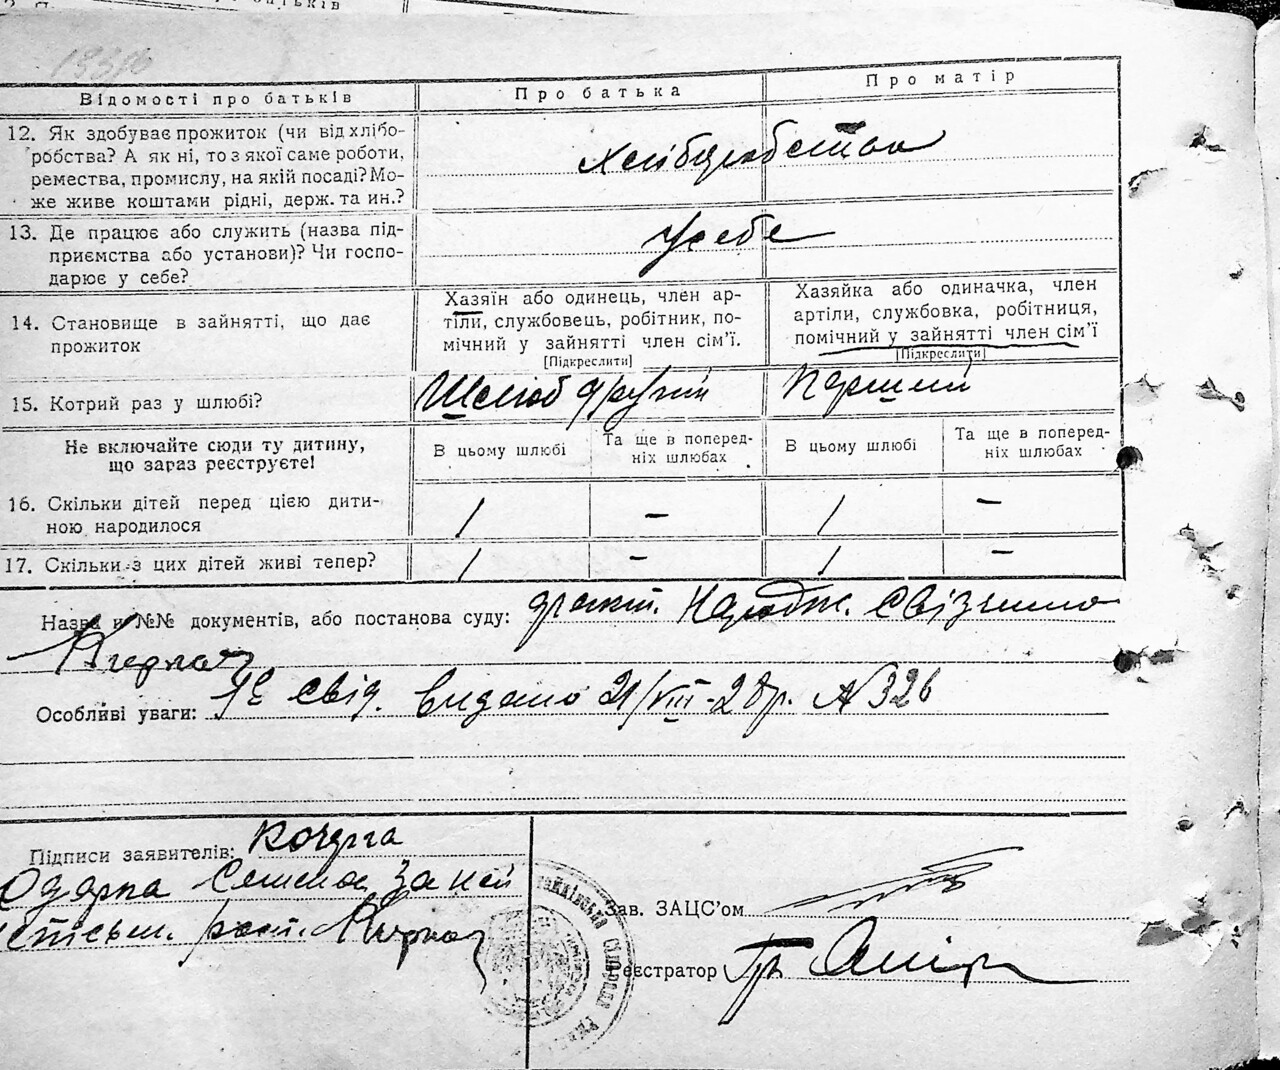 Відомості про батьків
Про батька
Про матір
12. Як здобуває прожиток (чи від хлібо-
робства? А як ні, то з якої саме роботи,
ремества, промислу, на якій посаді? Мо-
же живе коштами рідні, держ. та ин.?
Хліборобство
13. Де працює або служить (назва під-
приємства або установи)? Чи госпо-
дарює у себе?
У себе
14. Становище в зайнятті, що дає
прожиток
Хазяїн або одинець, член ар-
тіли, службовець, робітник, по-
мічний у зайнятті член сім'ї.
[Підкреслити]
Хазяйка або одиначка, член
артіли, службовка, робітниця,
помічний у зайнятті член сім'ї
[Підкреслити]
15. Котрий раз у шлюбі?
Шлюб другий
Перший
Не включайте сюди ту дитину,
що зараз реєструєте!
В цьому шлюбі
Та ще в поперед-
ніх шлюбах
В цьому шлюбі
Та ще в поперед-
ніх шлюбах
16. Скільки дітей перед цією дити-
ною народилося
1 – 1 –
17. Скільки з цих дітей живі тепер?
1 – 1 –
Назва и №№ документів, або постанова суду:
Народж.
Особливі уваги: свід. видано 21/VIII-28р. №326
Підписи заявителів: Кочерга
Одарка за неї
розп.
Зав. ЗАЦС'ом
Реєстратор